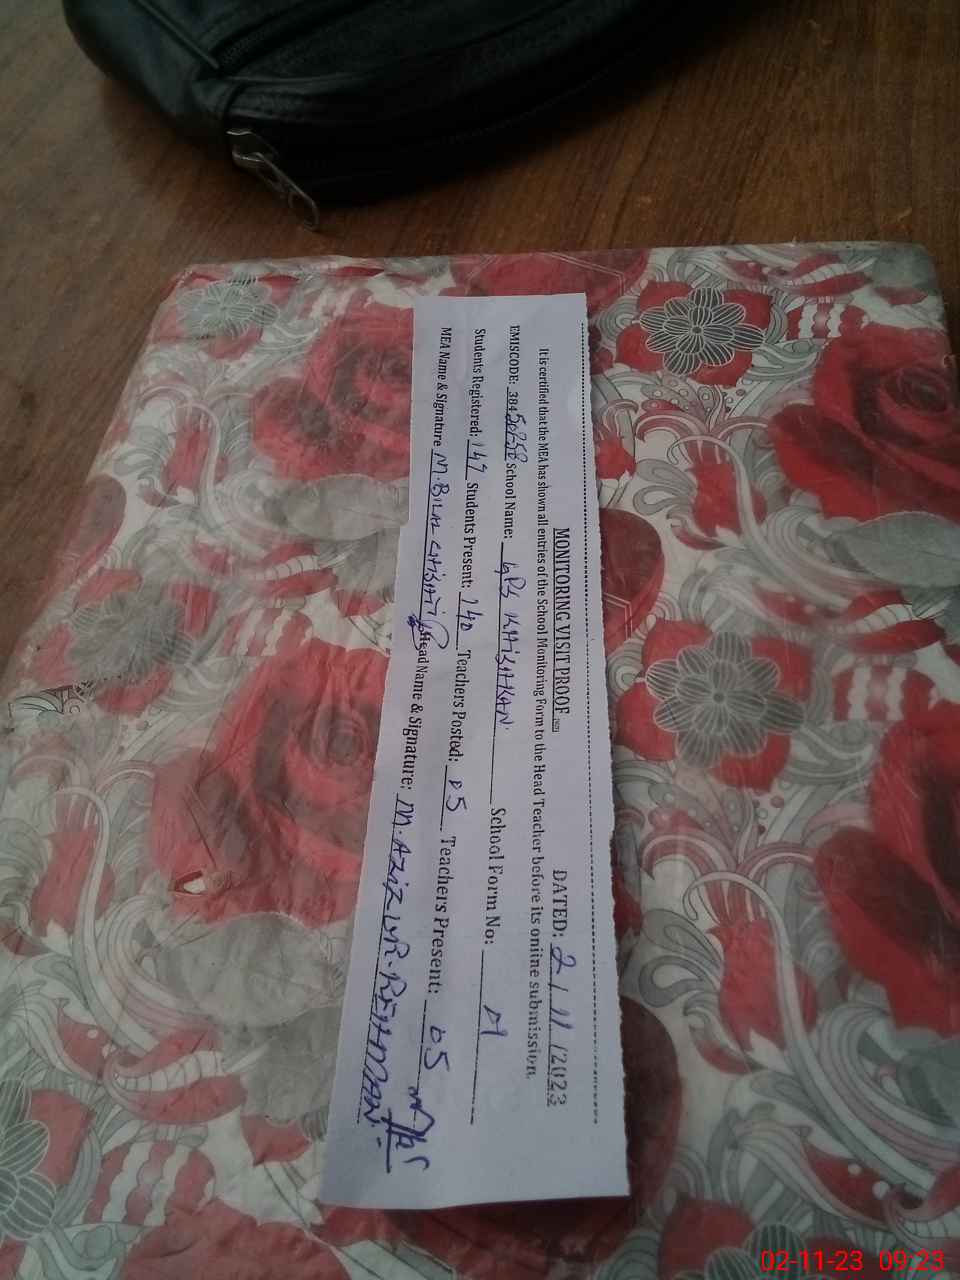 MONITORING VISIT PROOF DATED: 2/11/2023
It is certified that the MEA has shown all entries of the School Monitoring Form to the Head Teacher before its online submission.
EMISCODE: 384 School Name: GPS KHIBAKAN. School Form No:
Students Registered: 147 Students Present: 140 Teachers Posted: 05 Teachers Present: 05
MEA Name & Signature M. BILAL Head Name & Signature: M. AZIZ UR. REHMAN
02-11-23 09:23